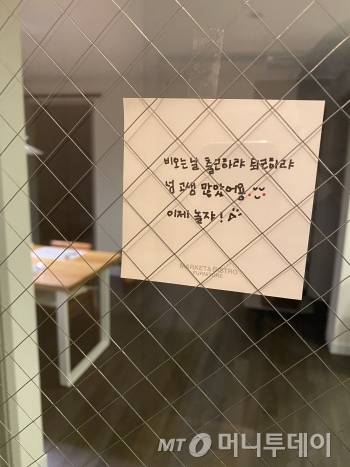 비오는날 출근하랴 퇴근하랴
넘 고생 많았어용
이제 놀자!
MARKET & BISTRO
MT 머니투데이